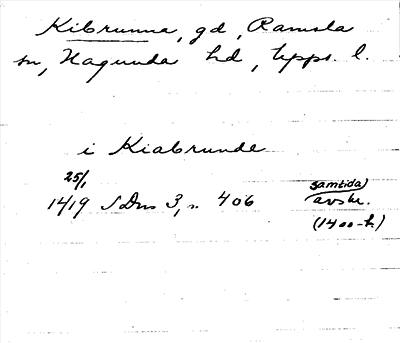 Kibrunna, gd, Ramsta
sn, Hagunda hd, Upps. l.
i Kiabrunde
25/1
1419 SDns 3, s. 406
samtida
avskr.
(1400-t.)